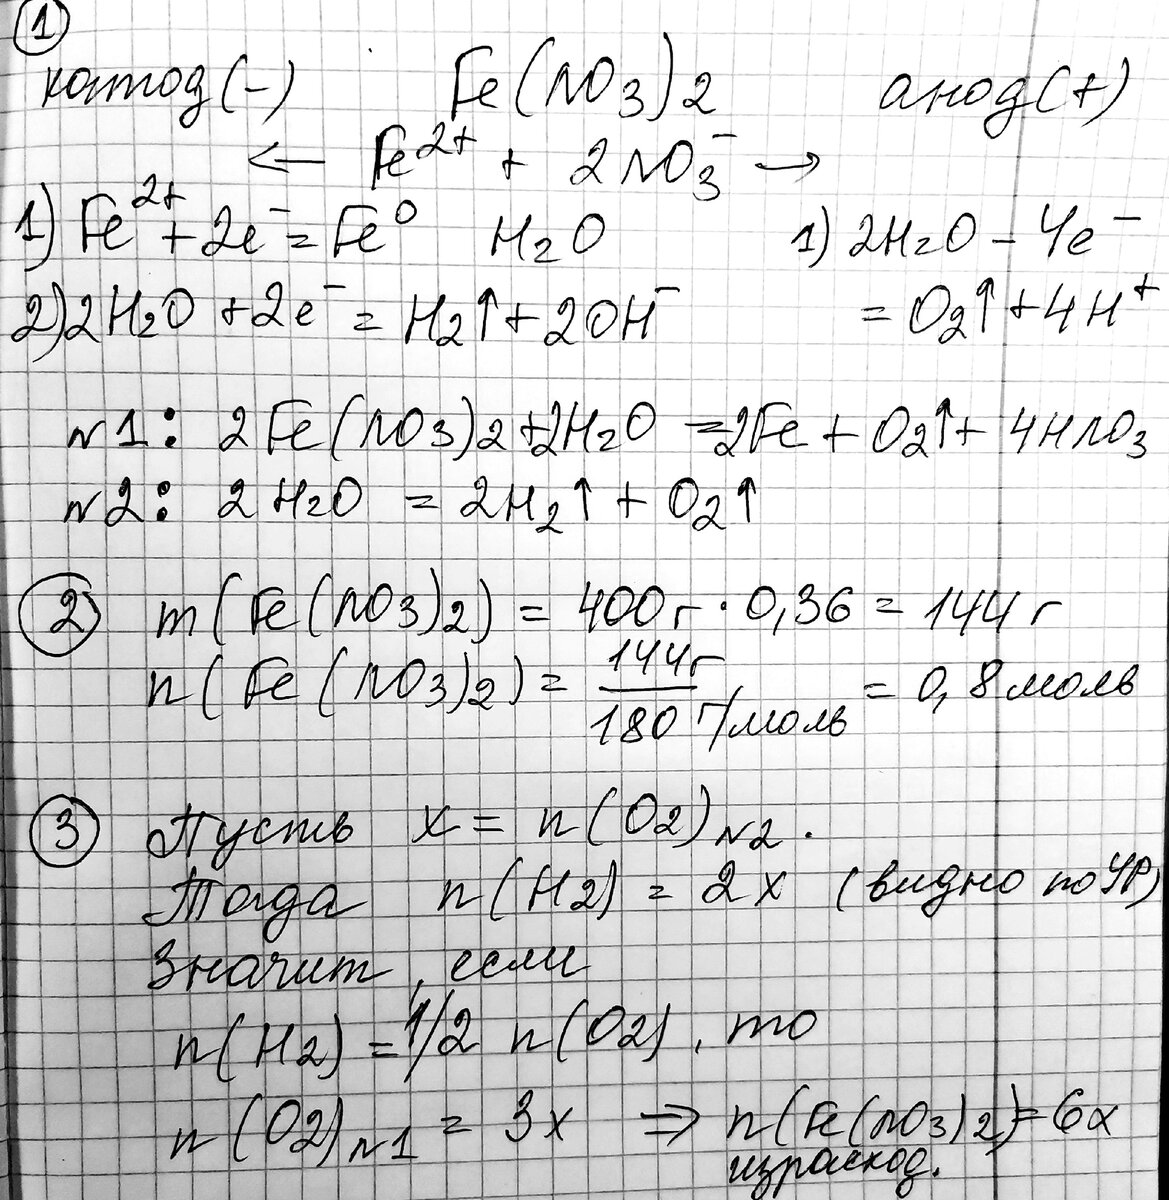 1
катод (-) Fe(NO3)2 анод (+)
← Fe²⁺ + 2NO₃⁻ →
1) Fe²⁺ + 2e⁻ = Fe⁰ H₂O 1) 2H₂O - 4e⁻
2) 2H₂O + 2e⁻ = H₂↑ + 2OH⁻ = O₂↑ + 4H⁺
№1: 2Fe(NO3)2 + 2H₂O = 2Fe + O₂↑ + 4HNO₃
№2: 2H₂O = 2H₂↑ + O₂↑
2 m(Fe(NO3)2) = 400г · 0,36 = 144г
n(Fe(NO3)2) = 144г / 180 г/моль = 0,8моль
3 Пусть x = n(O2)№2.
Тогда n(H2) = 2x (видно по УР)
Значит, если
n(H2) = 1/2 n(O2), то
n(O2)№1 = 3x ⇒ n(Fe(NO3)2) = 6x
израсход.